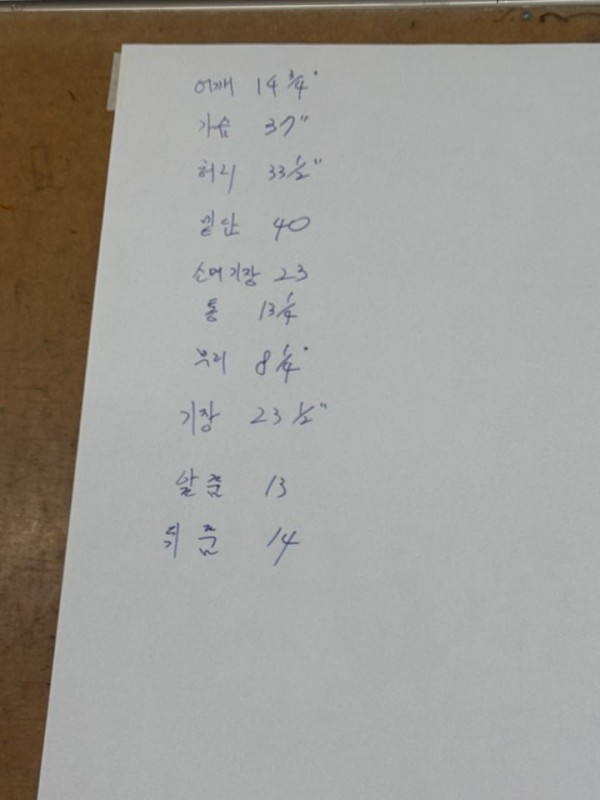 어깨 14 3/4"
가슴 37"
허리 33 1/2"
밑단 40
소매기장 23
통 13 1/4
부리 8 1/4"
기장 23 1/2"
앞품 13
뒤품 14